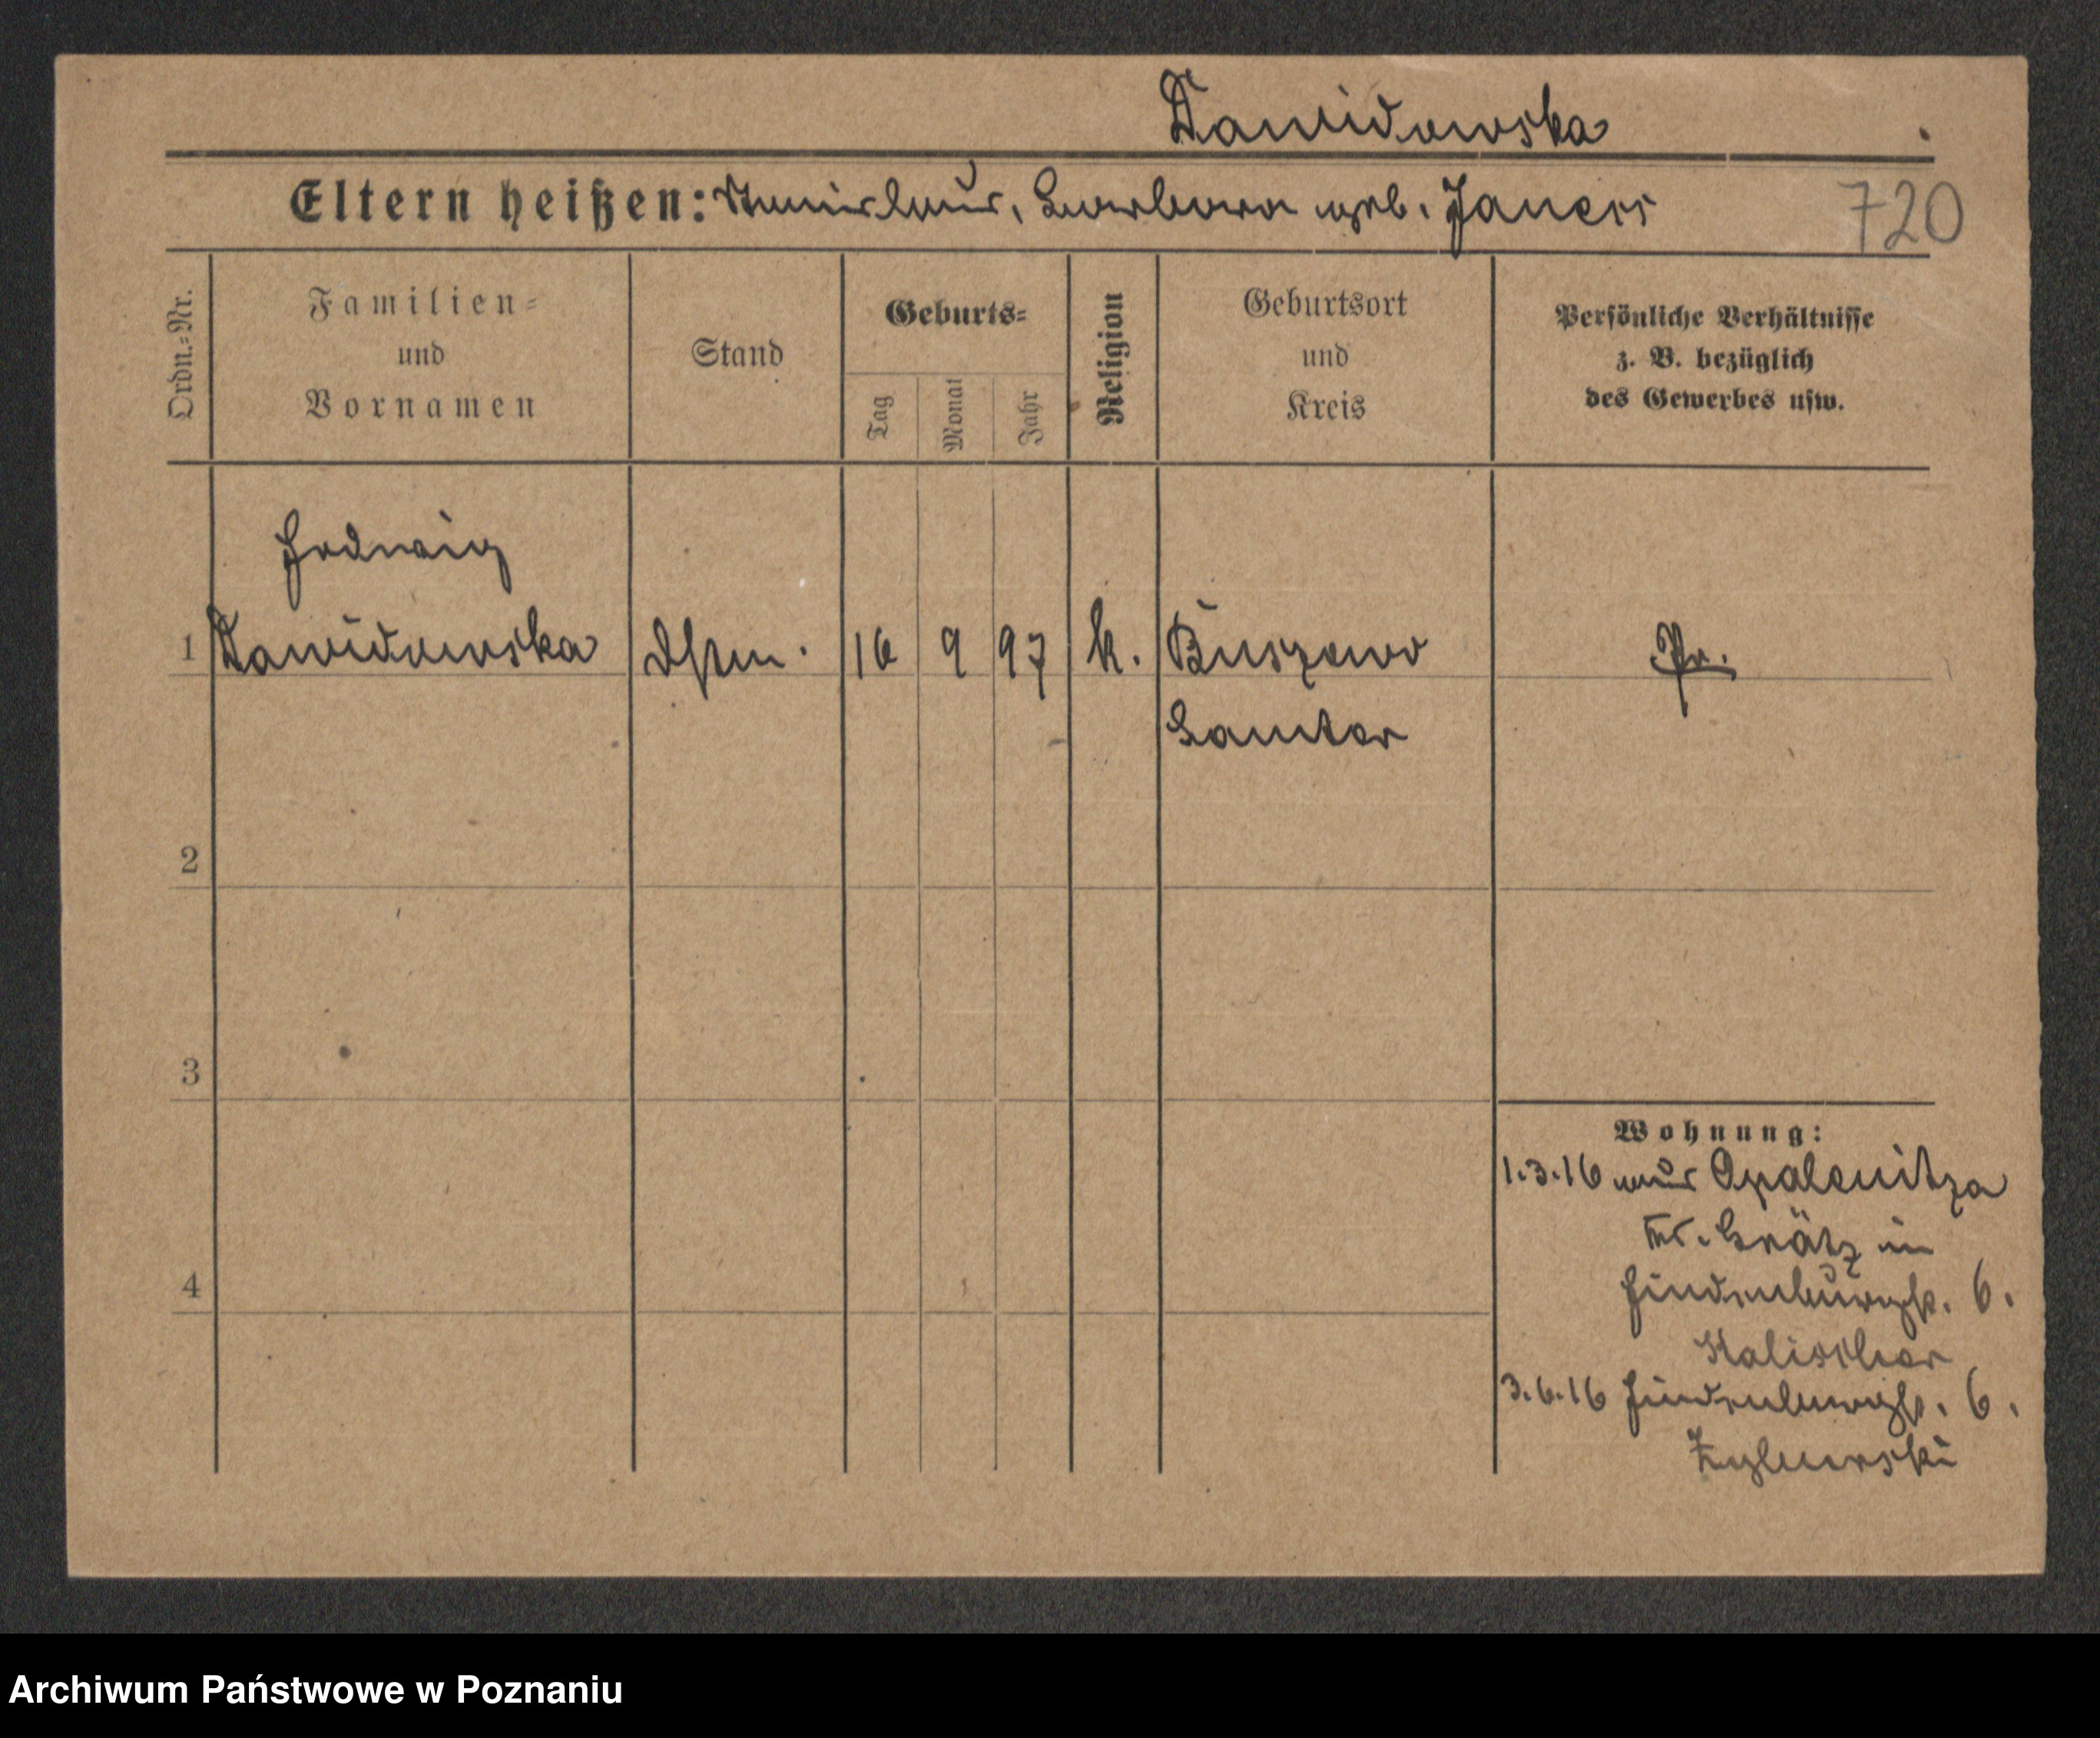 Dawidowska
Eltern heißen: Stanislaus, Barbara geb. Janess
720
Ordn.-Nr.
Familien-
und
Vornamen
Stand
Geburts-
Tag
Monat
Jahr
Religion
Geburtsort
und
Kreis
Persönliche Verhältnisse
z. B. bezüglich
des Gewerbes usw.
Hedwig
1 Dawidowska Dstm. 16 9 97 k. Buszewo Pr.
Samter
2
3
4
Wohnung:
1.3.16 aus Opalenitza
Kr. Grätz in
Hindenburgstr. 6.
Kalischer
3.6.16 Hindenburgstr. 6.
Archiwum Państwowe w Poznaniu